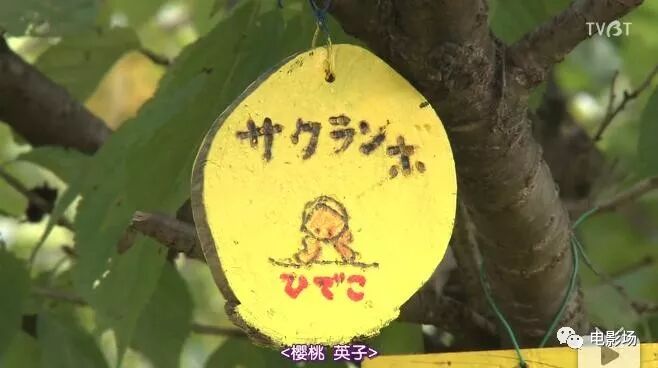 TVBT
サクランホ
ひでこ
<樱桃 英子>
电影场